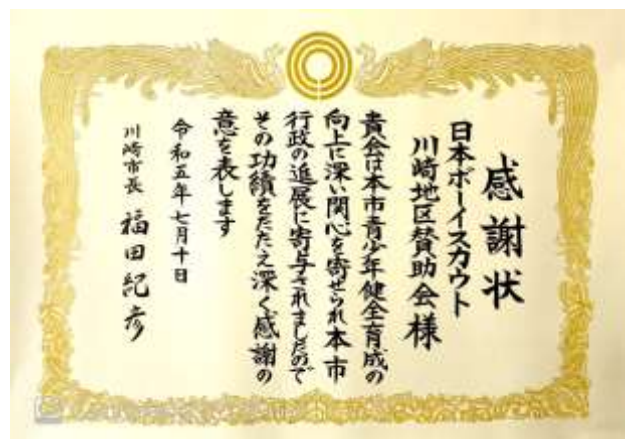 感謝状
日本ボーイスカウト
川崎地区賛助会様
貴会は本市青少年健全育成の
向上に深い関心を寄せられ本市
行政の進展に寄与されましたので
その功績をたたえ深く感謝の
意を表します
令和五年七月十日
川崎市長 福田紀彦